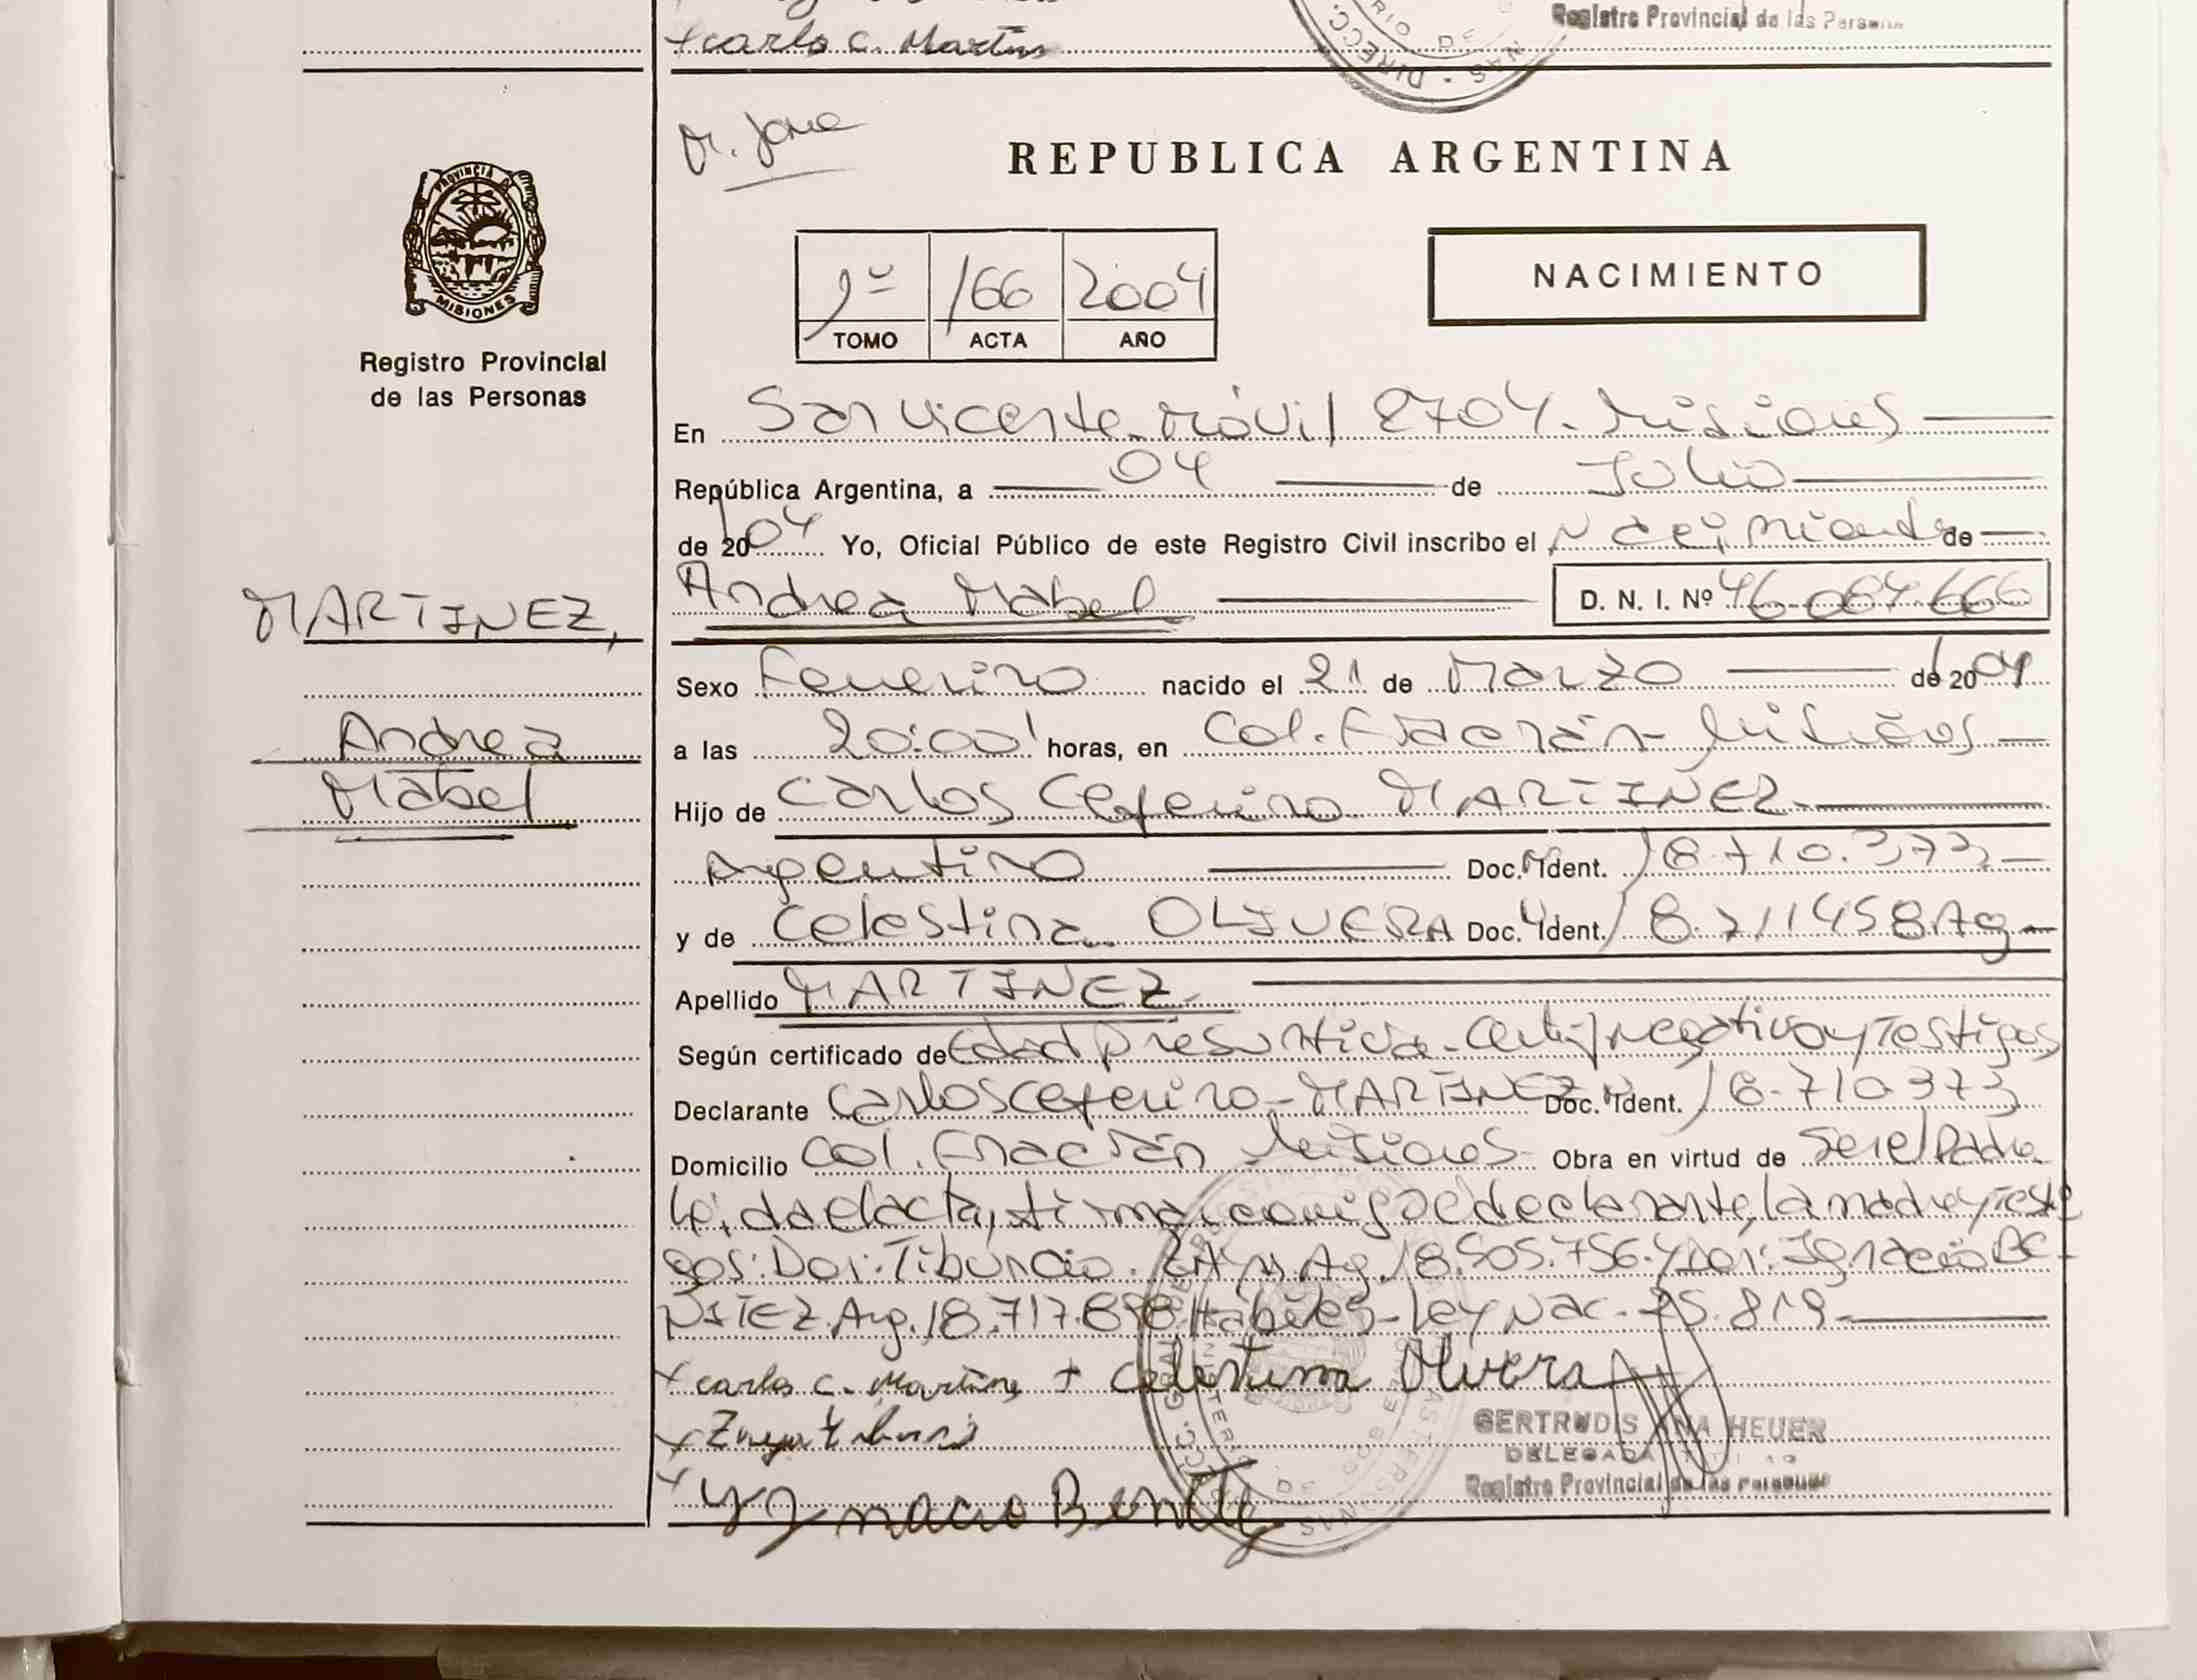 + carlo c. Martins
Registro Provincial de las Personas
Dr. Jone
REPUBLICA ARGENTINA
PROVINCIA DE
MISIONES
Registro Provincial
de las Personas
1º 166 2004
TOMO ACTA AÑO
NACIMIENTO
En San Vicente Móvil 2704. Misiones
República Argentina, a 04 de Julio
de 2004 Yo, Oficial Público de este Registro Civil inscribo el Nacimiento de
MARTINEZ,
Andrea Mabel D. N. I. Nº 46.084.666
Sexo Femenino nacido el 21 de Marzo de 2004
Andrea
a las 20:00' horas, en Col. Fracrán - Misiones
Mabel
Hijo de Carlos Ceferino MARTINEZ
Argentino Doc. Ident. 18.710.373
y de Celestina OLIVERA Doc. Ident. 18.711458 Ag
Apellido MARTINEZ
Según certificado de Edad presuntiva - Certif negativo y Testigos
Declarante Carlos Ceferino - MARTINEZ Doc. Ident. 18.710.373
Domicilio Col. Fracrán Misiones Obra en virtud de Ser el Padre
Leída el acta, firma conmigo el declarante, la madre y Testi
gos: Don: Tiburcio. Ag. 18.505.756. y Don: Ignacio BE-
NITEZ. Arg. 18.717.898 Hábiles - Ley Nac. 25.819
+ carlo c. Martine + Celestina Olivera
GERTRUDIS ANA HEUER
DELEGADA
Registro Provincial de las Personas
Ygnacio Benite